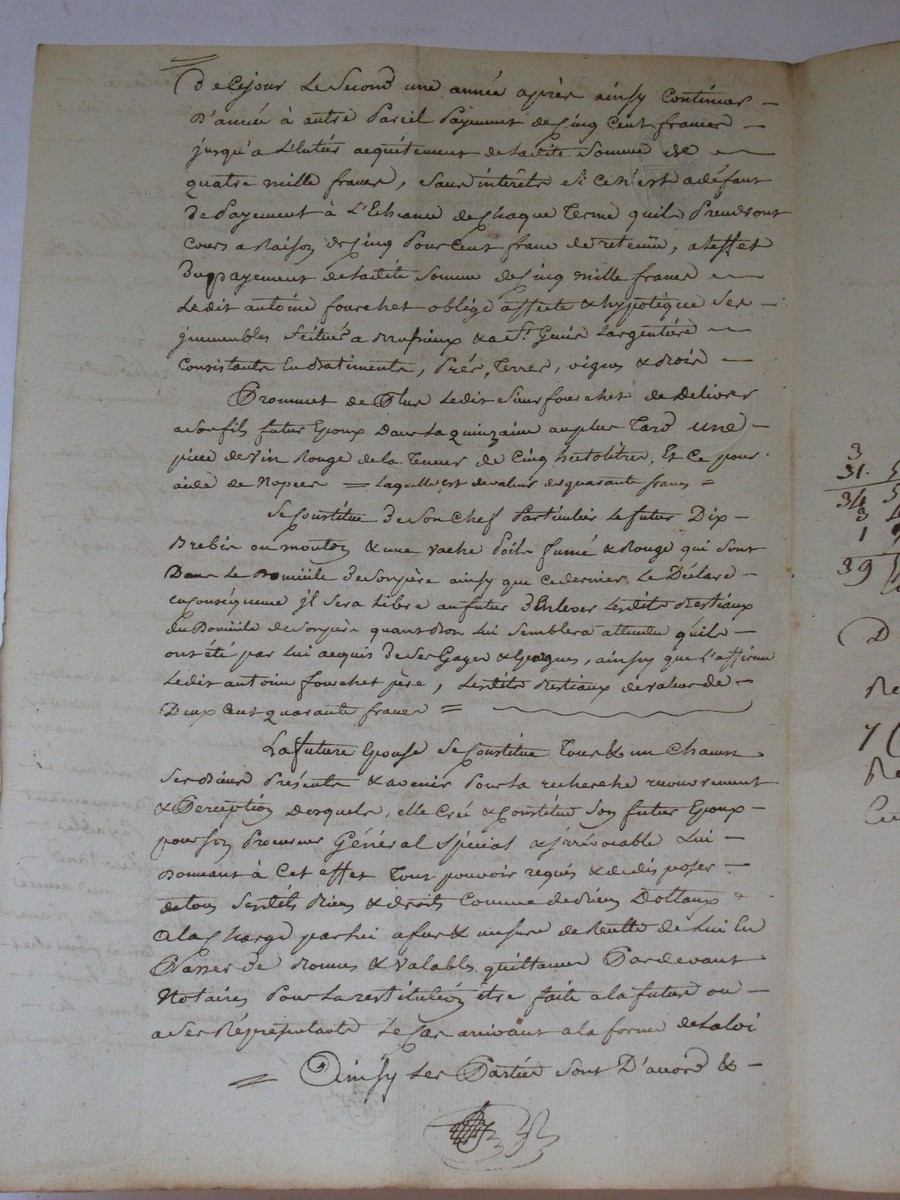 de ce jour Le Second une année après ainsy Continuer
D'année à autre Pareil Payement de Cinq Cent francs
jusqu'a L'entier acquitement de Ladite Somme de
quatre mille francs, Sans intérêts Si ce n'est a défaut
de Payement à L'Echeance de Chaque Terme quils Prendront
Cours a Raison de Cinq Pour Cent franc de retenüe, a leffet
du payement de Ladite Somme de Cinq mille francs
Ledit antoine fourchet obligé affecte & hypotèque Ses
jmmeubles Scitués a & a St. Genis Largentiere
Consistants En Batiments, Prés, Terres, vignes & Bois
Prommet de Plus Ledit Sieur fourchet de Delivrer
a Son fils futur Epoux Dans La quinzaine au plus Tard une
piece de vin Rouge de la Teneur de Cinq hectolitres, Et Ce pour
aide de Nopces = Laquelle est de valeur de quarante francs =
Se Constitue de Son Chef Particulier Le futur Dix
Brebis ou moutons & une vache Poils fumé & Rouge qui Sont
Dans Le Domicile de Son père ainsy que ce dernier Le Déclare
en Conséquence jl Sera Libre au futur d'Enlever Lesdits Bestiaux
du Domicile de Son père quant Bon Lui Semblera attendu quils
ont été par Lui acquis de Ses Gages & Epargnes, ainsy que L'affirme
Ledit antoine fourchet père, Lesdits Bestiaux de valeur de
Deux Cent quarante francs =
La future Epouse Se Constitue Tous & un Chacun
Ses Biens Présents & avenir Pour La recherche recouvrement
& Perception Desquels, elle Crée & Constitue Son futur Epoux
pour Son Procureur Général Spécial & jrrévocable Lui
Donnant à Cet effet Tout pouvoir requis & de disposer
de tous Sesdits Biens & droits Comme de Biens Dottaux
a la Charge par Lui a fur & mesure de Recette de Lui En
Passer de Bonnes & Valables quittances Pardevant
Notaires Pour La restitution être faite a la future ou
a Ses Représentants Le Cas arrivant a la forme de La Loi
Ainsy Les Parties Sont D'accord &
3
31. 5
34 5
3
1
39
D
7